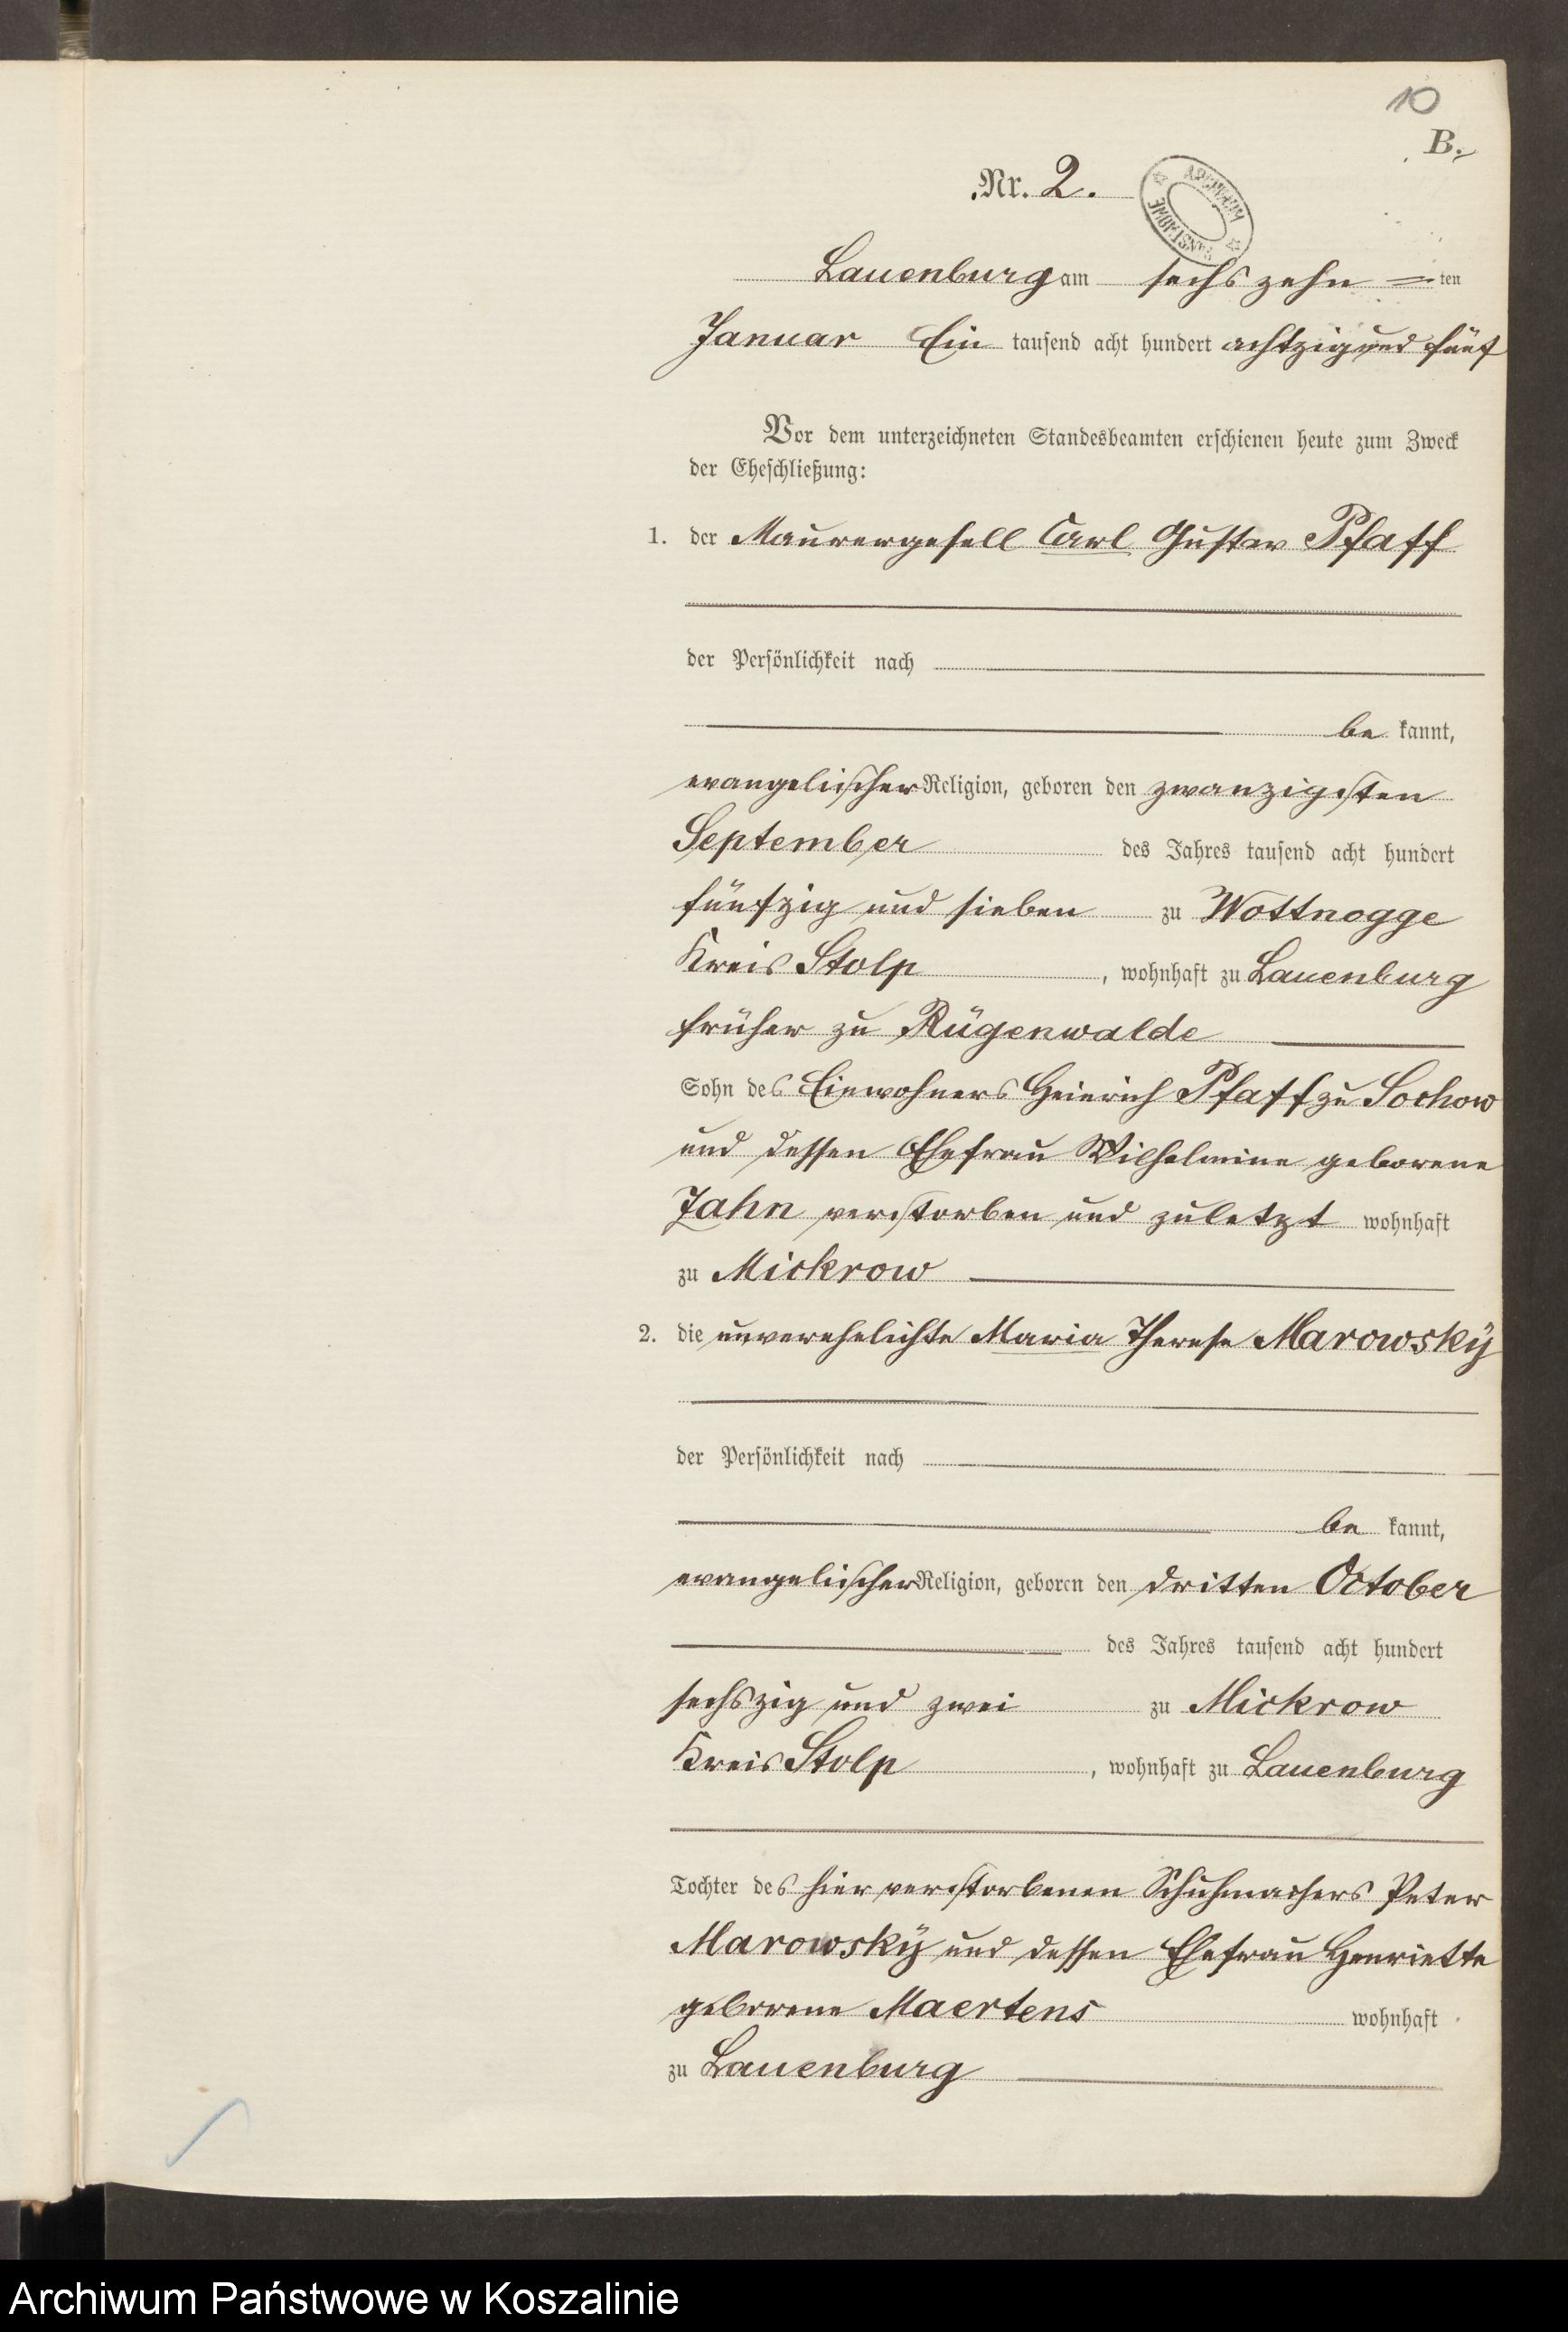 10
B.
Nr. 2.
ARCHIWUM PAŃSTWOWE
Lauenburg am sechszehn ten
Januar Ein tausend acht hundert achtzig und fünf
Vor dem unterzeichneten Standesbeamten erschienen heute zum Zweck
der Eheschließung:
1. der Maurergesell Carl Gustav Pfaff
der Persönlichkeit nach
be kannt,
evangelischer Religion, geboren den zwanzigsten
September des Jahres tausend acht hundert
fünfzig und sieben zu Wottnogge
Kreis Stolp, wohnhaft zu Lauenburg
früher zu Rügenwalde
Sohn des Einwohners Heinrich Pfaff zu Sochow
und dessen Ehefrau Wilhelmine geborene
Jahn verstorben und zuletzt wohnhaft
zu Mickrow
2. die unverehelichte Maria Therese Marowsky
der Persönlichkeit nach
be kannt,
evangelischer Religion, geboren den dritten October
des Jahres tausend acht hundert
sechszig und zwei zu Mickrow
Kreis Stolp, wohnhaft zu Lauenburg
Tochter des hier verstorbenen Schuhmachers Peter
Marowsky und dessen Ehefrau Henriette
geborene Maertens wohnhaft
zu Lauenburg
Archiwum Państwowe w Koszalinie